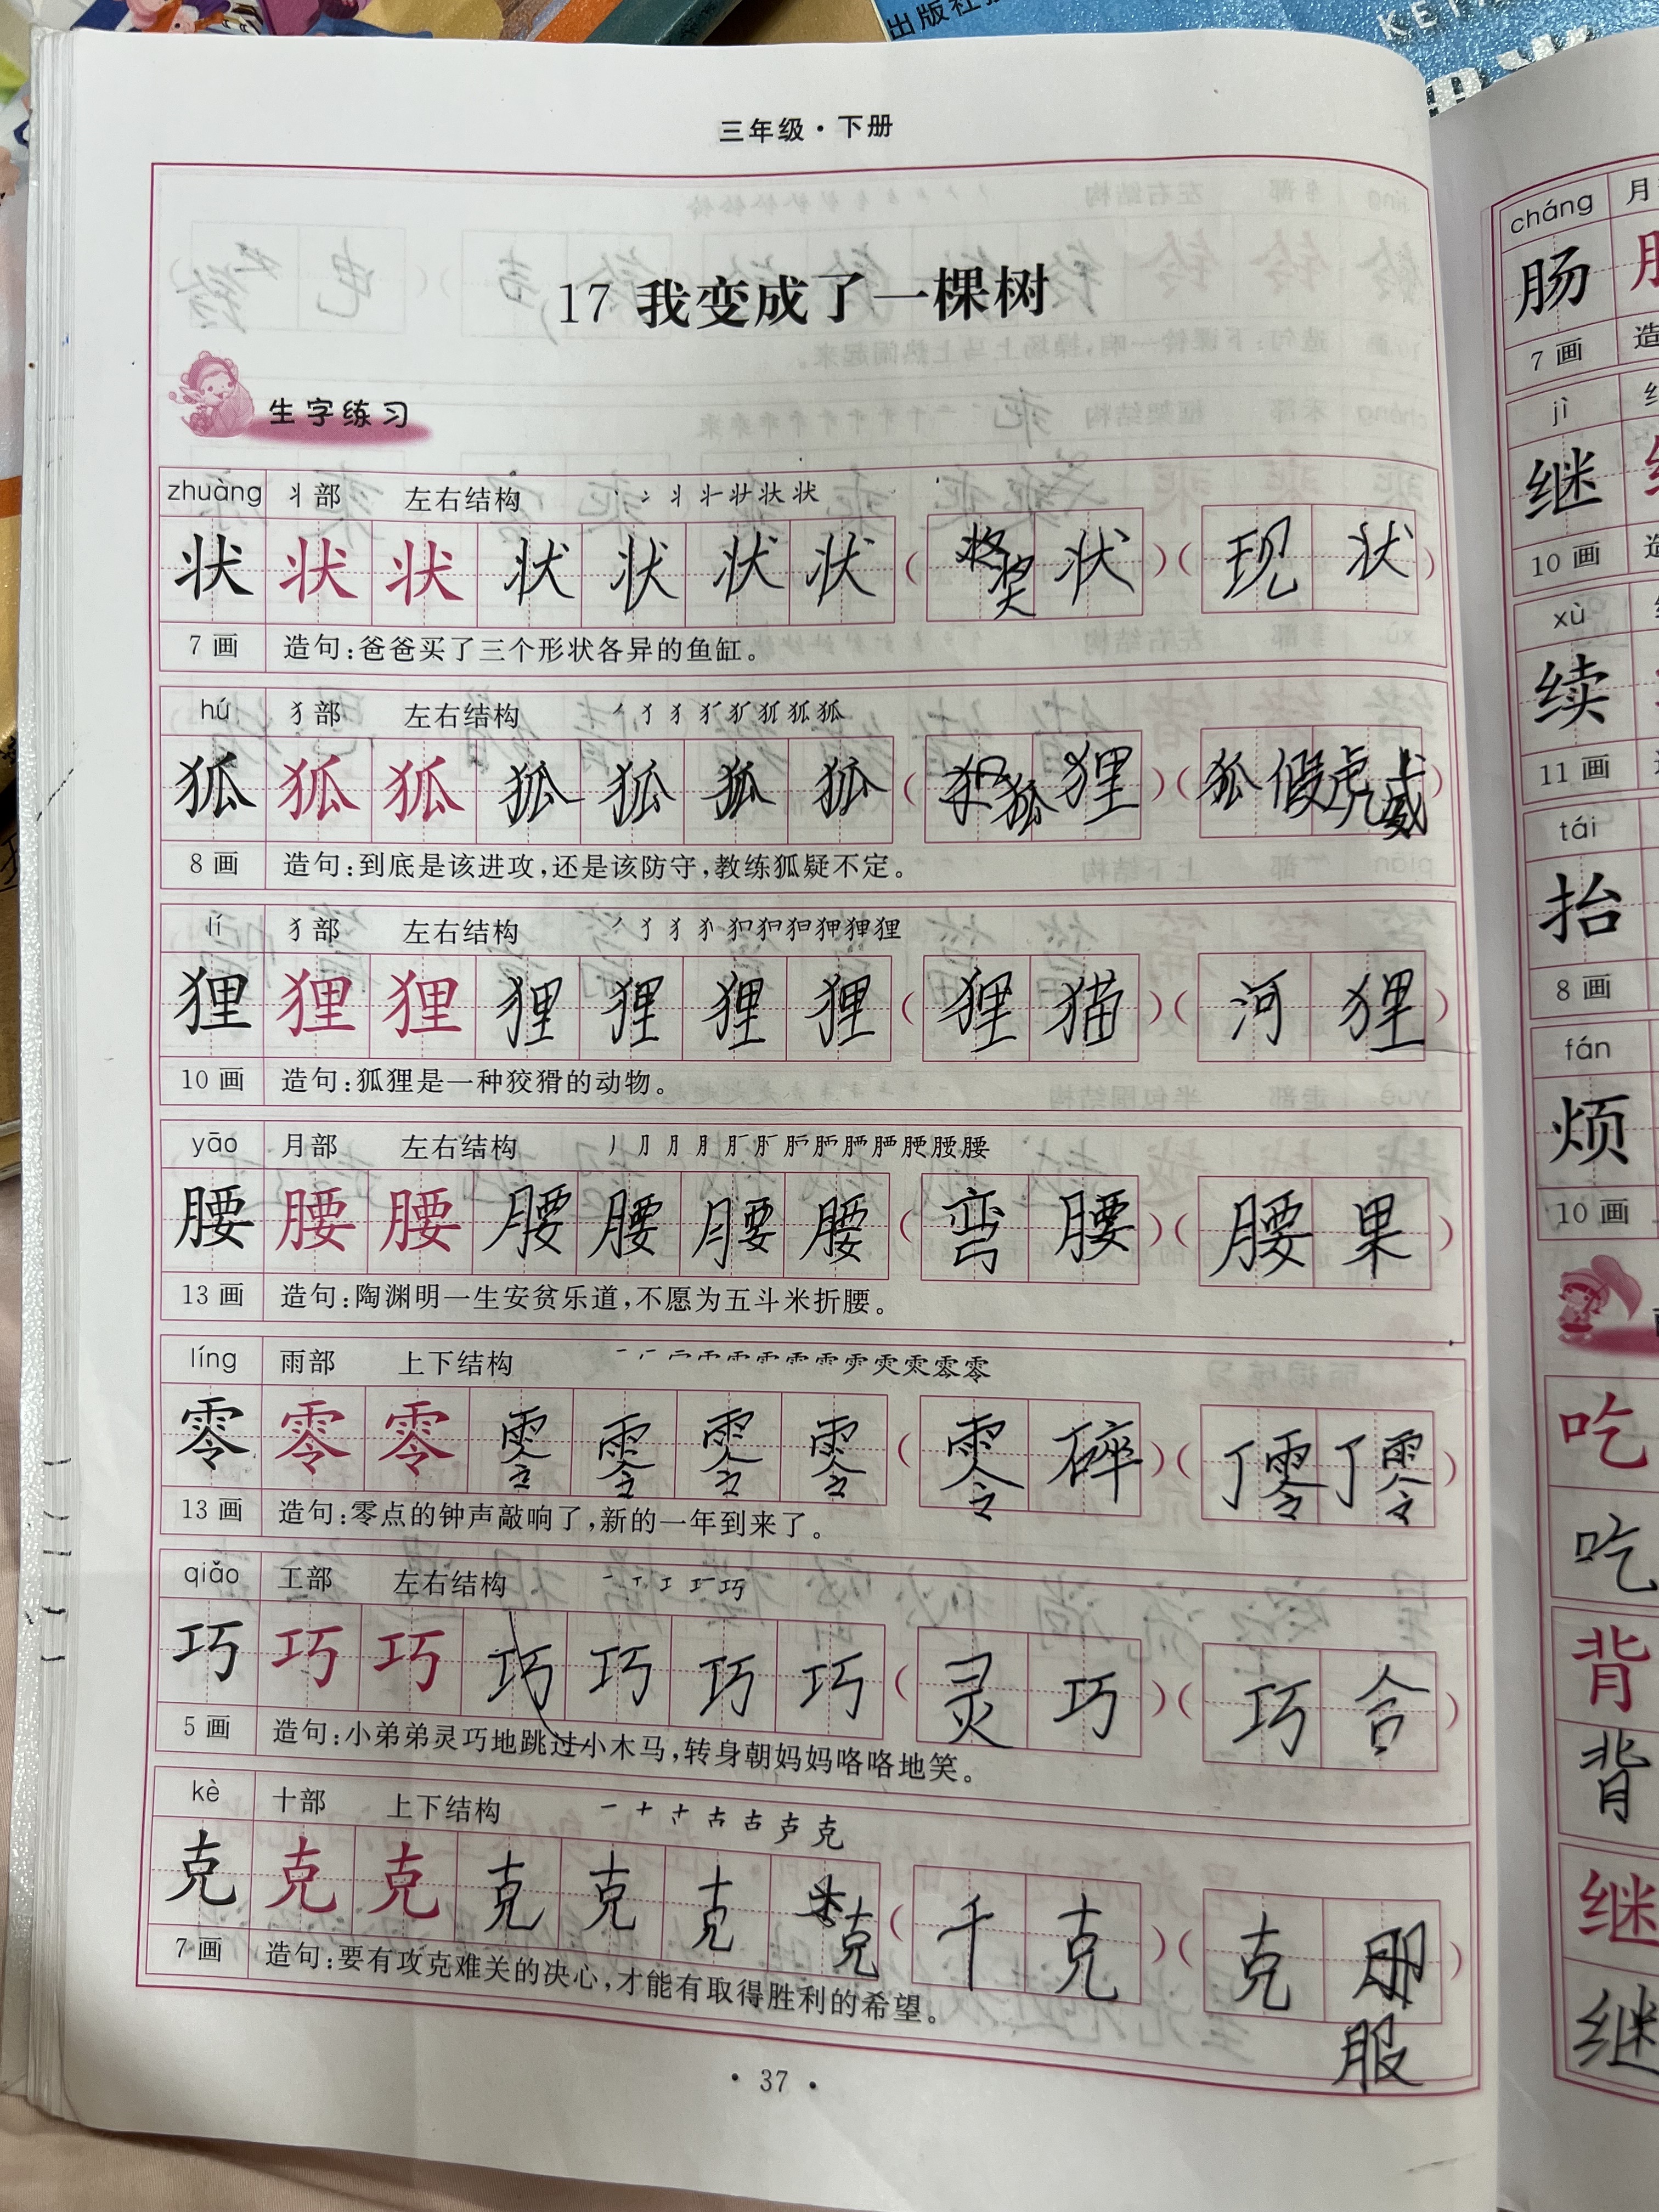 出版社
KE
三年级·下册
17 我变成了一棵树
生字练习
zhuàng 丬部 左右结构
状 状 状 状 状 状 状 ( 奖 状 ) ( 现 状 )
7 画 造句:爸爸买了三个形状各异的鱼缸。
hú 犭部 左右结构
狐 狐 狐 狐 狐 狐 狐 ( 狐 狸 ) ( 狐 假 虎 威 )
8 画 造句:到底是该进攻,还是该防守,教练狐疑不定。
lí 犭部 左右结构
狸 狸 狸 狸 狸 狸 狸 ( 狸 猫 ) ( 河 狸 )
10 画 造句:狐狸是一种狡猾的动物。
yāo 月部 左右结构
腰 腰 腰 腰 腰 腰 腰 ( 弯 腰 ) ( 腰 果 )
13 画 造句:陶渊明一生安贫乐道,不愿为五斗米折腰。
líng 雨部 上下结构
零 零 零 零 零 零 零 ( 零 碎 ) ( 丁 零 丁 零 )
13 画 造句:零点的钟声敲响了,新的一年到来了。
qiǎo 工部 左右结构
巧 巧 巧 巧 巧 巧 巧 ( 灵 巧 ) ( 巧 合 )
5 画 造句:小弟弟灵巧地跳过小木马,转身朝妈妈咯咯地笑。
kè 十部 上下结构 一 十 十 古 古 声 克
克 克 克 克 克 克 克 ( 千 克 ) ( 克 服 )
7 画 造句:要有攻克难关的决心,才能有取得胜利的希望。
·37·
cháng 月
肠
7 画 造
jì
继
10 画 造
xù
续
11 画
tái
抬
8 画
fán
烦
10 画
吃
吃
背
背
继
继